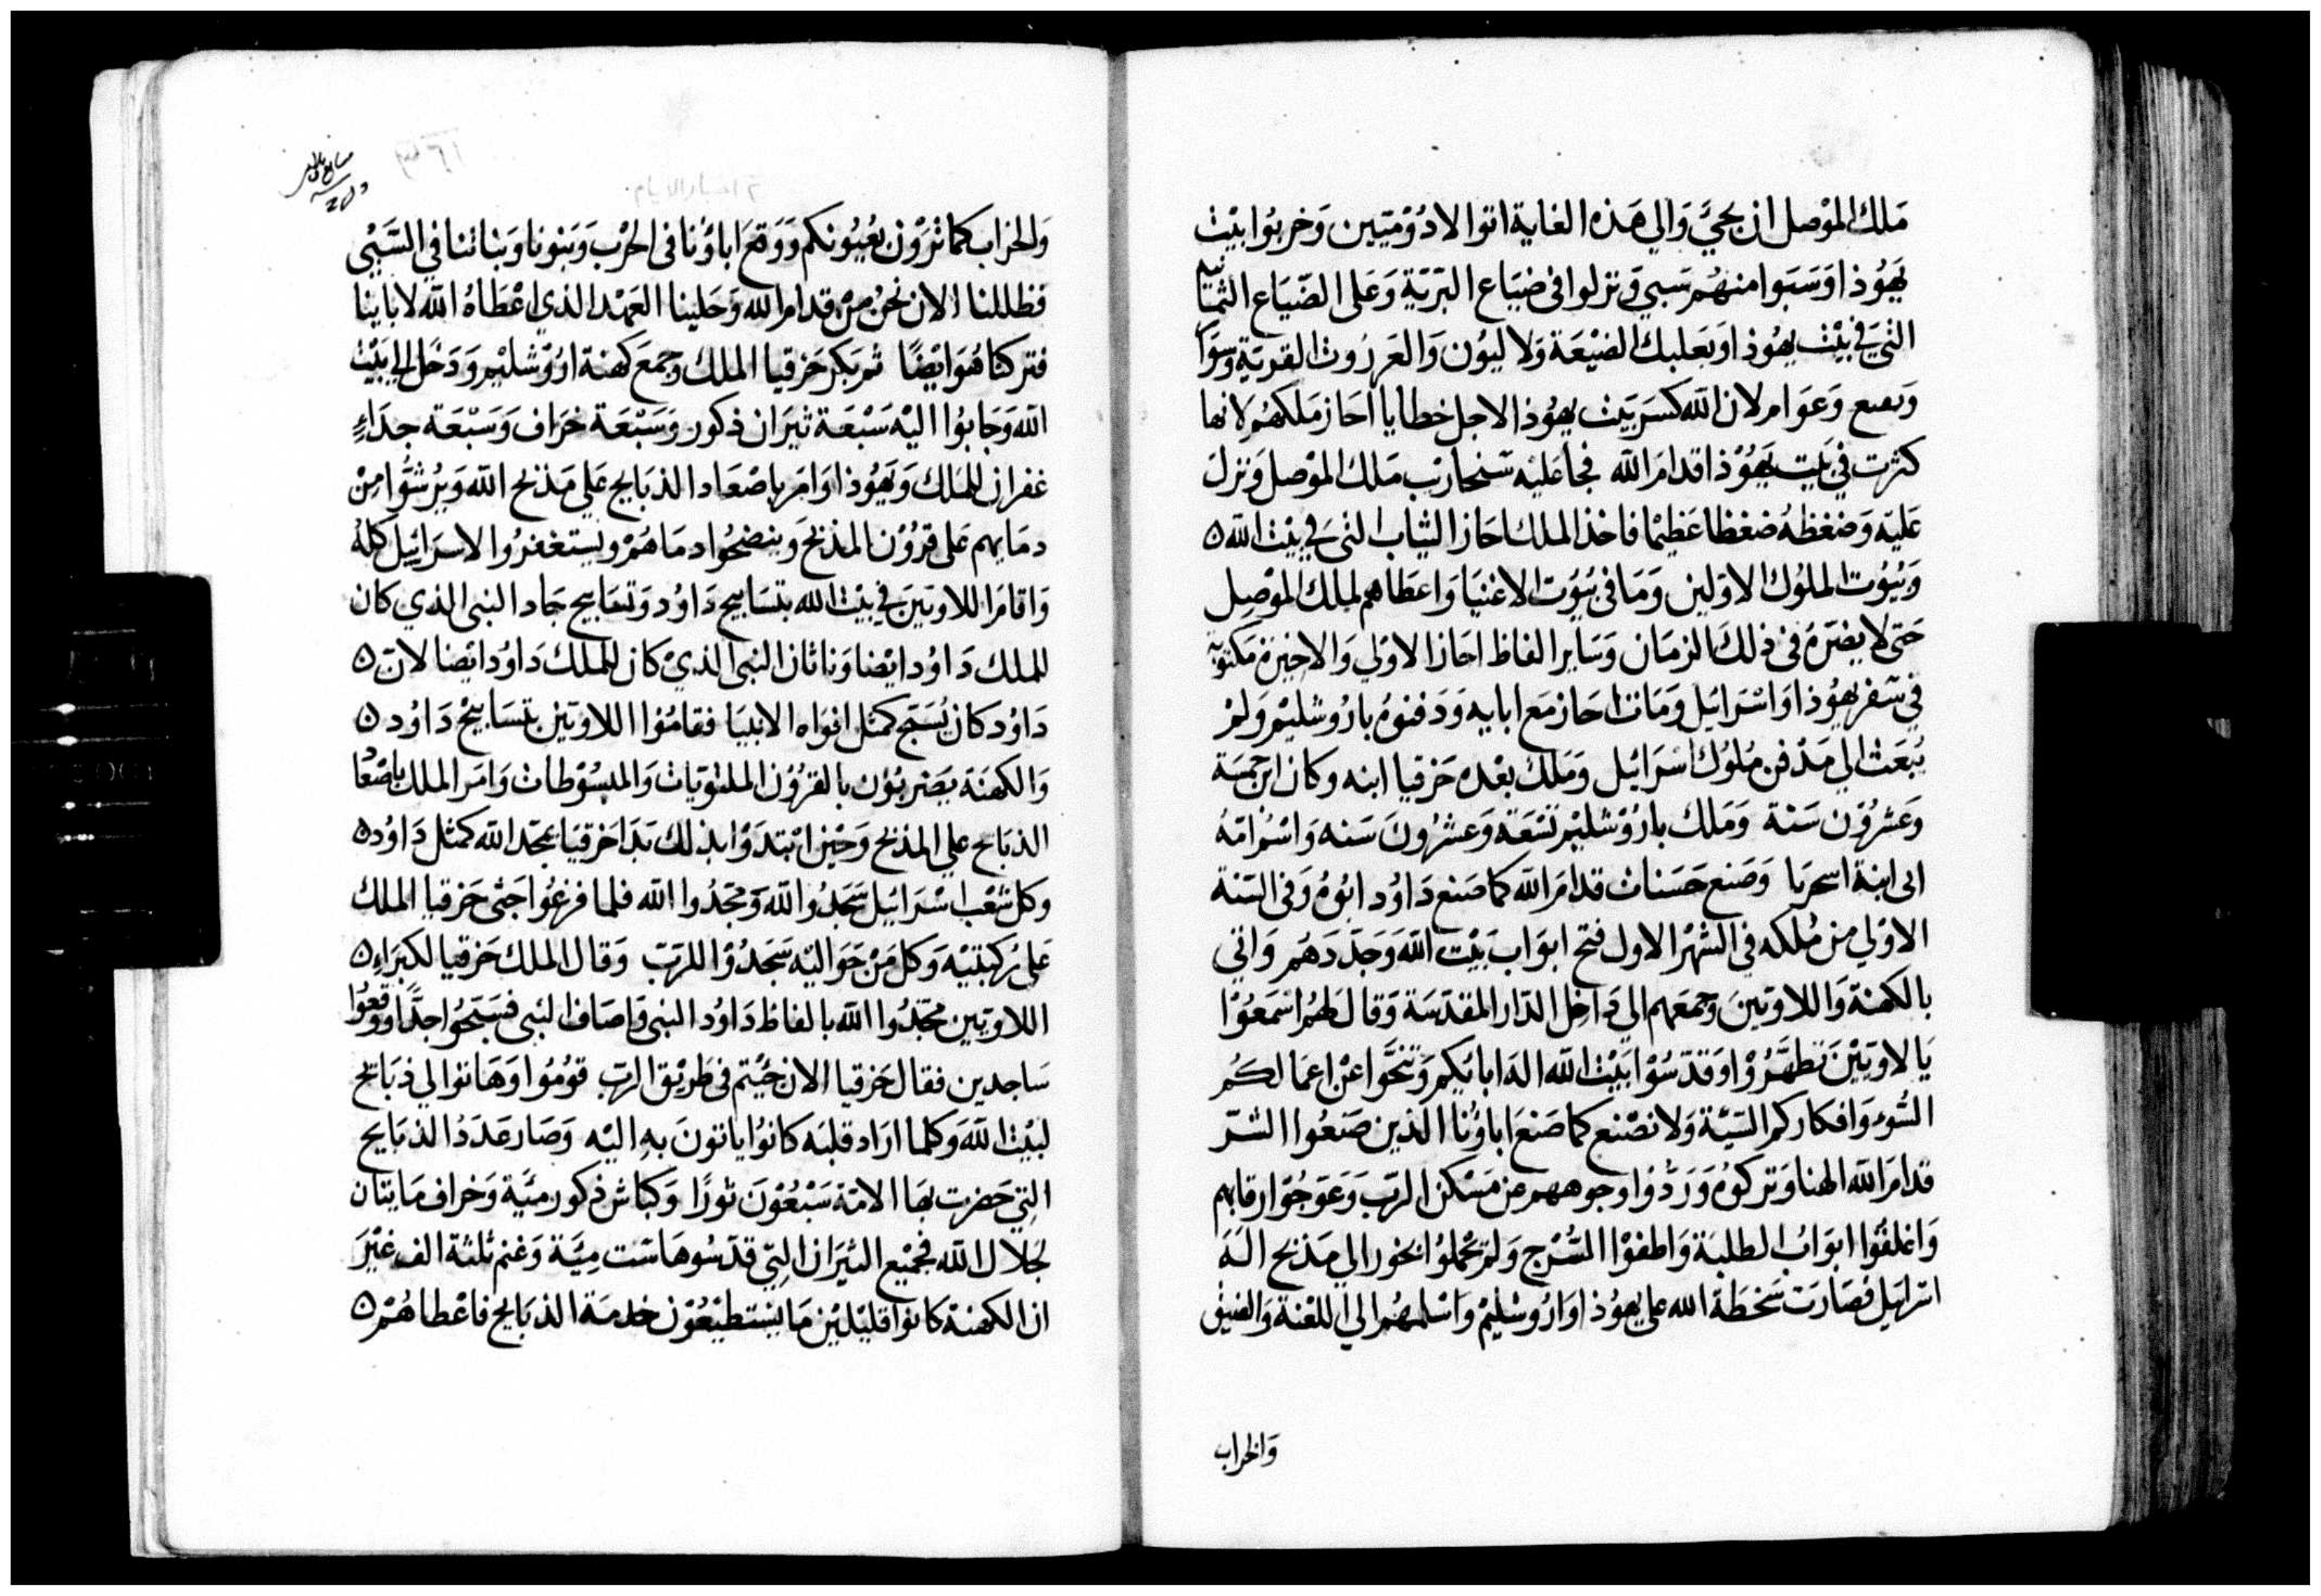 ملك الموصل ان يجيَّ وَالي هَذه الغاية اتوا الادُوْمَيين وَخربُوا بيْت
يهُوذا وَسَبَوا منهُم سَبي وَنزلوا في ضيَاع البَرّيَة وَعَلى الضّيَاع
التيَ في بيْت يهُوذا وَبعَلبك الضيْعَة وَلاليوُن وَالعَرزوُت القريَة وَسوَا
وَعَوامر لان الله كسَر بَيت يهوُذا لاجل خطايا احَاز مَلكهُم لانها
كثرت في بَيت يَهوُذا قدامَ الله فجا عَليْه سَنحاريْب مَلك الموْصل وَنزلَ
عَليَه وَضغَظهُ ضغظا عَظيْما فاخذ الملك احَاز الثيَاب التيَ في بيْت الله ٥
وَبيُوُت الملوُك الاوَلين وَمَا في بُيوُت الاغنيَا وَاعطَاهم لملك الموْصِل
حَتى لا يضرَهَ في ذلكَ الزمَان وَسَاير الفاظ احَاز الاوَلي وَالاخيرَة مَكتوبَه
في سَفر يهوُذا وَاسْرَايَل وَمَات احَاز مَع ابايه وَدَفنوهُ باروُشليْم وَلمْ
يُبعَث الي مَدْفن مُلوُك اسْرَائيل وَمَلكَ بعْده حَزقيا ابنه وكان ابن خمسَة
وَعَشرُوْن سَنة وَمَلك بارُوْشليْم تسْعَة وَعشرُونَ سَنه وَاسْمُ امّهُ
ابى ابنة اسحريَا وَصَنع حَسَنات قدامَ الله كما صَنع دَاوُد ابُوهُ وَفي السّنة
الاوْلي من مُلكه في الشهْر الاول فتح ابوَاب بَيْت الله وَجَدّدَهَمر وَاتي
بالكهنَة وَاللاويَينَ وَجمعَهم الي دَاخِل الدّار المقدّسَة وَقال لَهُم اسْمَعُوْا
يَا لاويَيْنَ تطهَّرُوْا وَقدّسُوْا بَيْت الله اله ابائكم وَتنحَّوا عنْ اعمَالكُم
السُّوء وَافكاركم السّيّة وَلا نصْنع كما صَنعَ اباؤُنا الذين صَنعُوا الشرّ
قدامَ الله الهنا وَتركوُه وَرَدُّوا وجوههم عن مَسْكن الرَبّ وَعَوجُوْا رقابهم
وَاغلقوُا ابوَابُ الطلبَة وَاطفوْا السُّرْج وَلمْ يحْملوُا بخورا الي مَذبح الهَ
اسْرَايَل فصَارَت سَخطَة الله على يهوُذا وَاروُشليْم وَاسْلمهُم الي اللعْنة وَالضيْق
وَالخراب
وَالخرَاب كما ترَوْن بعُيوُنكم وَوَقعَ اباؤُنا في الحرْب وَبَنونا وَبناتنا في السَّبْي
فظللنا الان نحنُ منْ قدامَ الله وَحَلينا العَهْد الذي اعْطَاهُ الله لابَاينا
فتركنا هُوَ ايْضًا ثم بَكر حَزقيا الملك وَجمعَ كهنة اوُرُشليْم وَدَخل الي بَيْت
الله وَجَابوُا اليْه سَبْعَة ثيرَان ذكور وَسَبْعَة خرَاف وَسَبْعَة جدَاءٍ
غفران للمَلك وَيهوُذا وَامَر باصْعَاد الذبَايح عَلي مَذبح الله وَيُرشوُّا مِنْ
دمَايهم عَلى قروُن المذبَح وَينضحوُا دمَاهَمْ ويستغفرُوا لاسرَائيْل كلهُ
وَاقامَ اللاويَينَ في بيْت الله بتسَابيح دَاوُد وَتسَابيح جَاد النبي الذي كان
للملك دَاوُد ايْضا وَناتان النبي الذيْ كان للملكَ دَاوُد ايْضا لان ٥
دَاوُد كان يُسَبّح كمثل افوَاه الانبيَا فقامُوْا اللاويَين بتسَابيْح دَاوُد ٥
وَالكهنَة يَضربوُن بالقرُوُن الملتويَات وَالمبسُوْطات وَامَر الملك باصْعَاد
الذبَايح علي المذبح وَحْين ابْتدَوْا بذلك بَدَا حَزقيَا يمجّد الله كمثل دَاوُد ٥
وكل شعْب اسْرَائيل سَجَدُوا لله وَمجّدُوا الله فلما فرغوُا جَثى حَزقيا الملك
عَلى رُكبتيْه وَكل مَنْ حَوَاليْه سَجَدُوْا للرَبّ وَقال الملك حَزقيا لكبرَاء ٥
اللاويَين مجّدُوا الله بالفاظ دَاوُد النبي وَاصَاف النبي فسَبّحُوا جدًّا وَوَقعُوا
سَاجدين فقال حَزقيا الان جئتم في طَريْق الربّ قوُمُوا وَهَاتوا لي ذبَايح
لبيْت الله وَكلما ارَاد قلبَه كانوُا ياتونَ بهِ اليْه وَصَار عَدَدُ الذبَايح
التِي حَضرت بهَا الامَة سَبْعُوْنَ ثورًا وَكباش ذكور ميَّة وَخراف مَايتَان
لجلال الله فجميْع الثيَرَان التِي قدّسُوهَا سَت مِيَّة وَغنم ثلثة الف غيْرَ
ان الكهنة كانوا قليْليْن مَا يسْتطيْعُوْن خدمَة الذبَايح فاعْطاهُمْ ٥